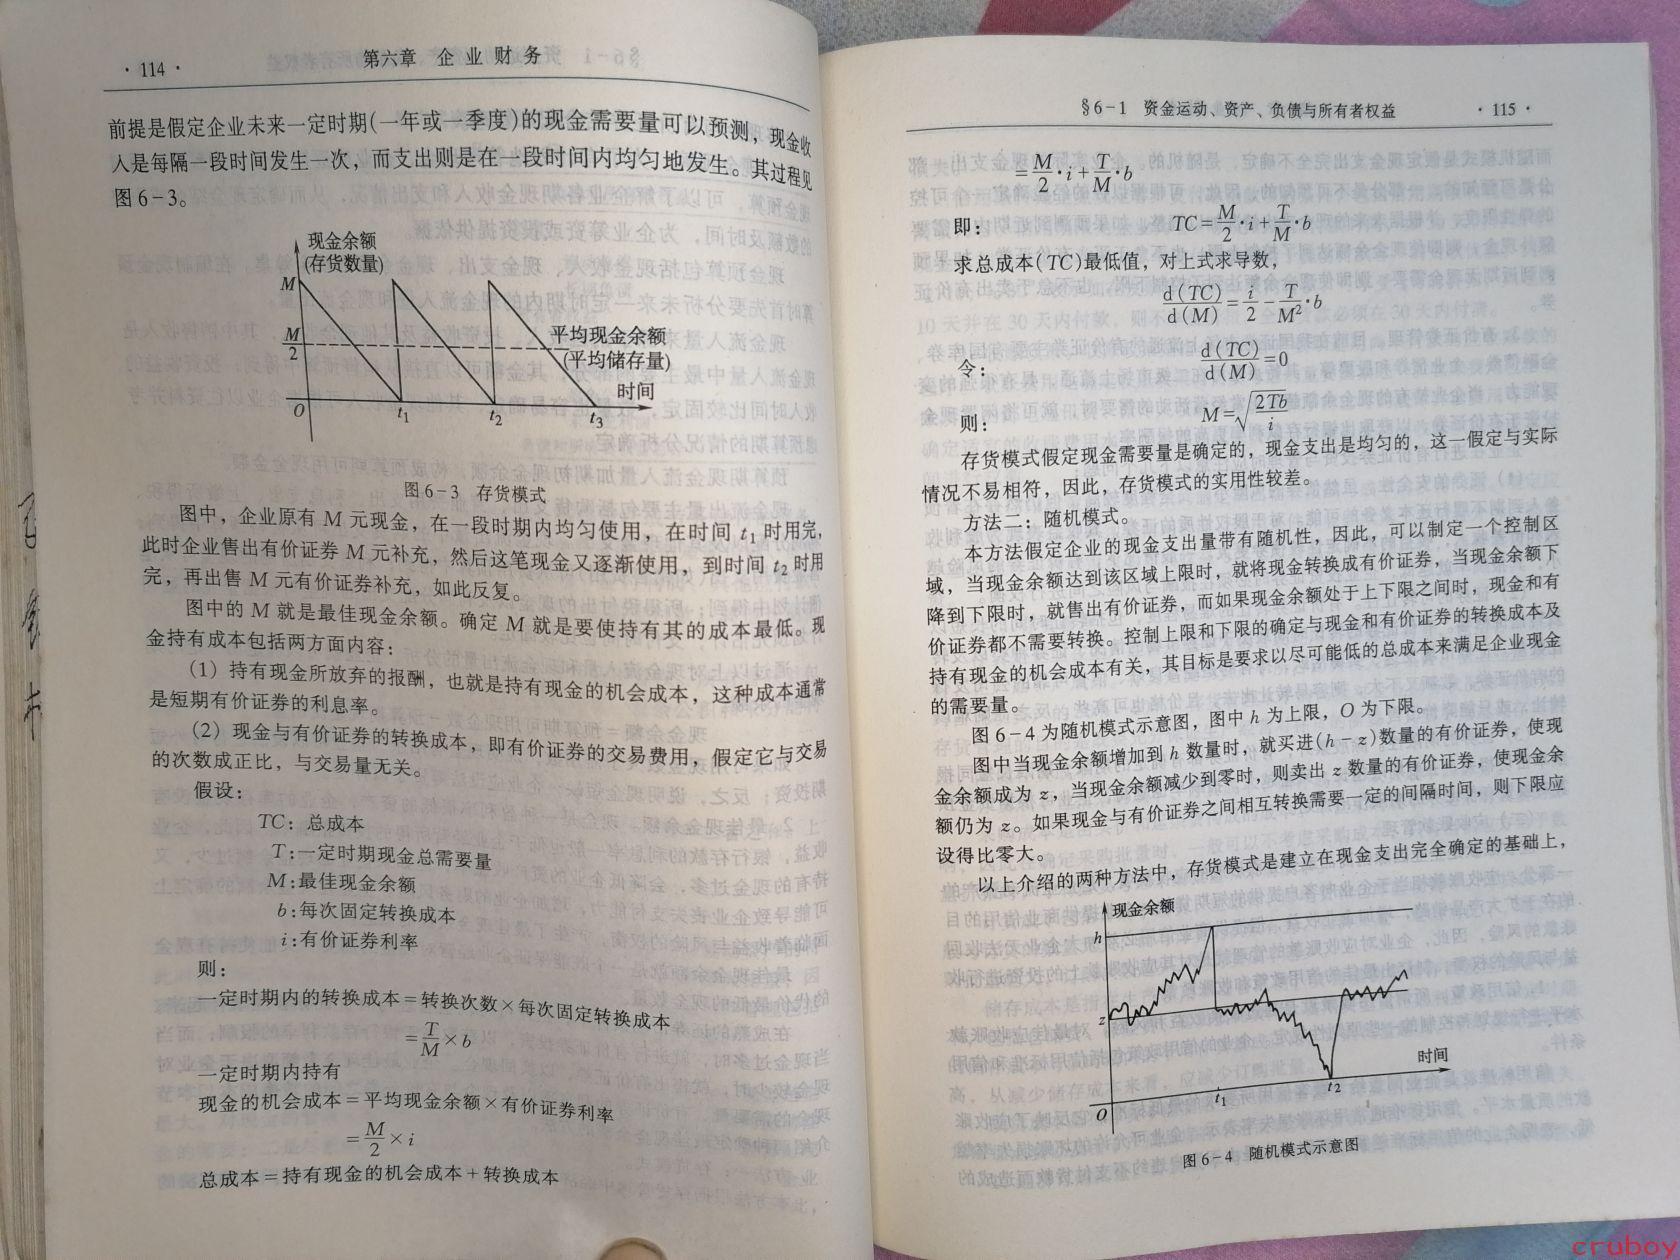 · 114 ·
第六章 企业财务
前提是假定企业未来一定时期(一年或一季度)的现金需要量可以预测，现金收
入是每隔一段时间发生一次，而支出则是在一段时间内均匀地发生。其过程见
图6-3。
现金余额
(存货数量)
M
M/2
平均现金余额
(平均储存量)
时间
O
t₁
t₂
t₃
图6-3 存货模式
图中，企业原有 M 元现金，在一段时期内均匀使用，在时间 t₁ 时用完，
此时企业售出有价证券 M 元补充，然后这笔现金又逐渐使用，到时间 t₂ 时用
完，再出售 M 元有价证券补充，如此反复。
图中的 M 就是最佳现金余额。确定 M 就是要使持有其的成本最低。现
金持有成本包括两方面内容：
(1) 持有现金所放弃的报酬，也就是持有现金的机会成本，这种成本通常
是短期有价证券的利息率。
(2) 现金与有价证券的转换成本，即有价证券的交易费用，假定它与交易
的次数成正比，与交易量无关。
假设：
TC：总成本
T：一定时期现金总需要量
M：最佳现金余额
b：每次固定转换成本
i：有价证券利率
则：
一定时期内的转换成本=转换次数×每次固定转换成本
=T/M×b
一定时期内持有
现金的机会成本=平均现金余额×有价证券利率
=M/2×i
总成本=持有现金的机会成本+转换成本
§6-1 资金运动、资产、负债与所有者权益
· 115 ·
=M/2·i+T/M·b
即：
TC=M/2·i+T/M·b
求总成本(TC)最低值，对上式求导数，
d(TC)/d(M)=i/2-T/M²·b
令：
d(TC)/d(M)=0
则：
M=√(2Tb/i)
存货模式假定现金需要量是确定的，现金支出是均匀的，这一假定与实际
情况不易相符，因此，存货模式的实用性较差。
方法二：随机模式。
本方法假定企业的现金支出量带有随机性，因此，可以制定一个控制区
域，当现金余额达到该区域上限时，就将现金转换成有价证券，当现金余额下
降到下限时，就售出有价证券，而如果现金余额处于上下限之间时，现金和有
价证券都不需要转换。控制上限和下限的确定与现金和有价证券的转换成本及
持有现金的机会成本有关，其目标是要求以尽可能低的总成本来满足企业现金
的需要量。
图6-4为随机模式示意图，图中 h 为上限，O 为下限。
图中当现金余额增加到 h 数量时，就买进(h-z)数量的有价证券，使现
金余额成为 z，当现金余额减少到零时，则卖出 z 数量的有价证券，使现金余
额仍为 z。如果现金与有价证券之间相互转换需要一定的间隔时间，则下限应
设得比零大。
以上介绍的两种方法中，存货模式是建立在现金支出完全确定的基础上，
现金余额
h
z
时间
O
t₁
t₂
图6-4 随机模式示意图
cruboy